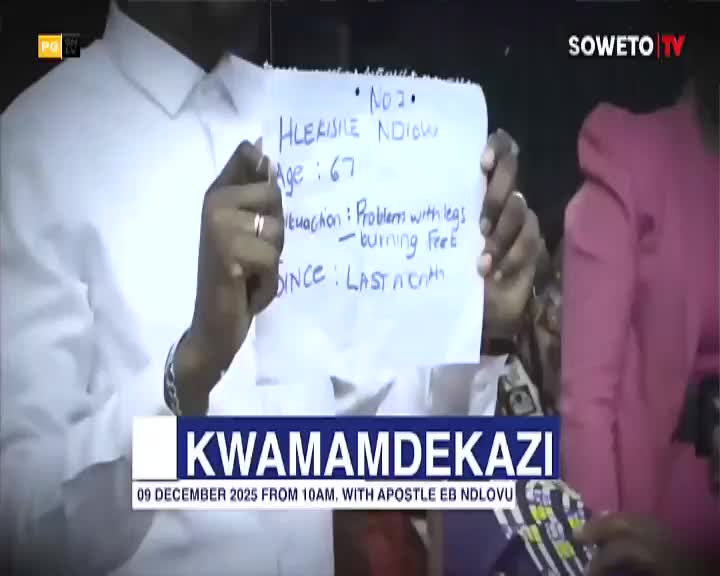 PG
SOWETO TV
• No 2 •
HLEKISILE NDLOVU
Age : 67
ituaction : Problems with legs
– burning Feet
SINCE : LAST
KWAMAMDEKAZI
09 DECEMBER 2025 FROM 10AM, WITH APOSTLE EB NDLOVU